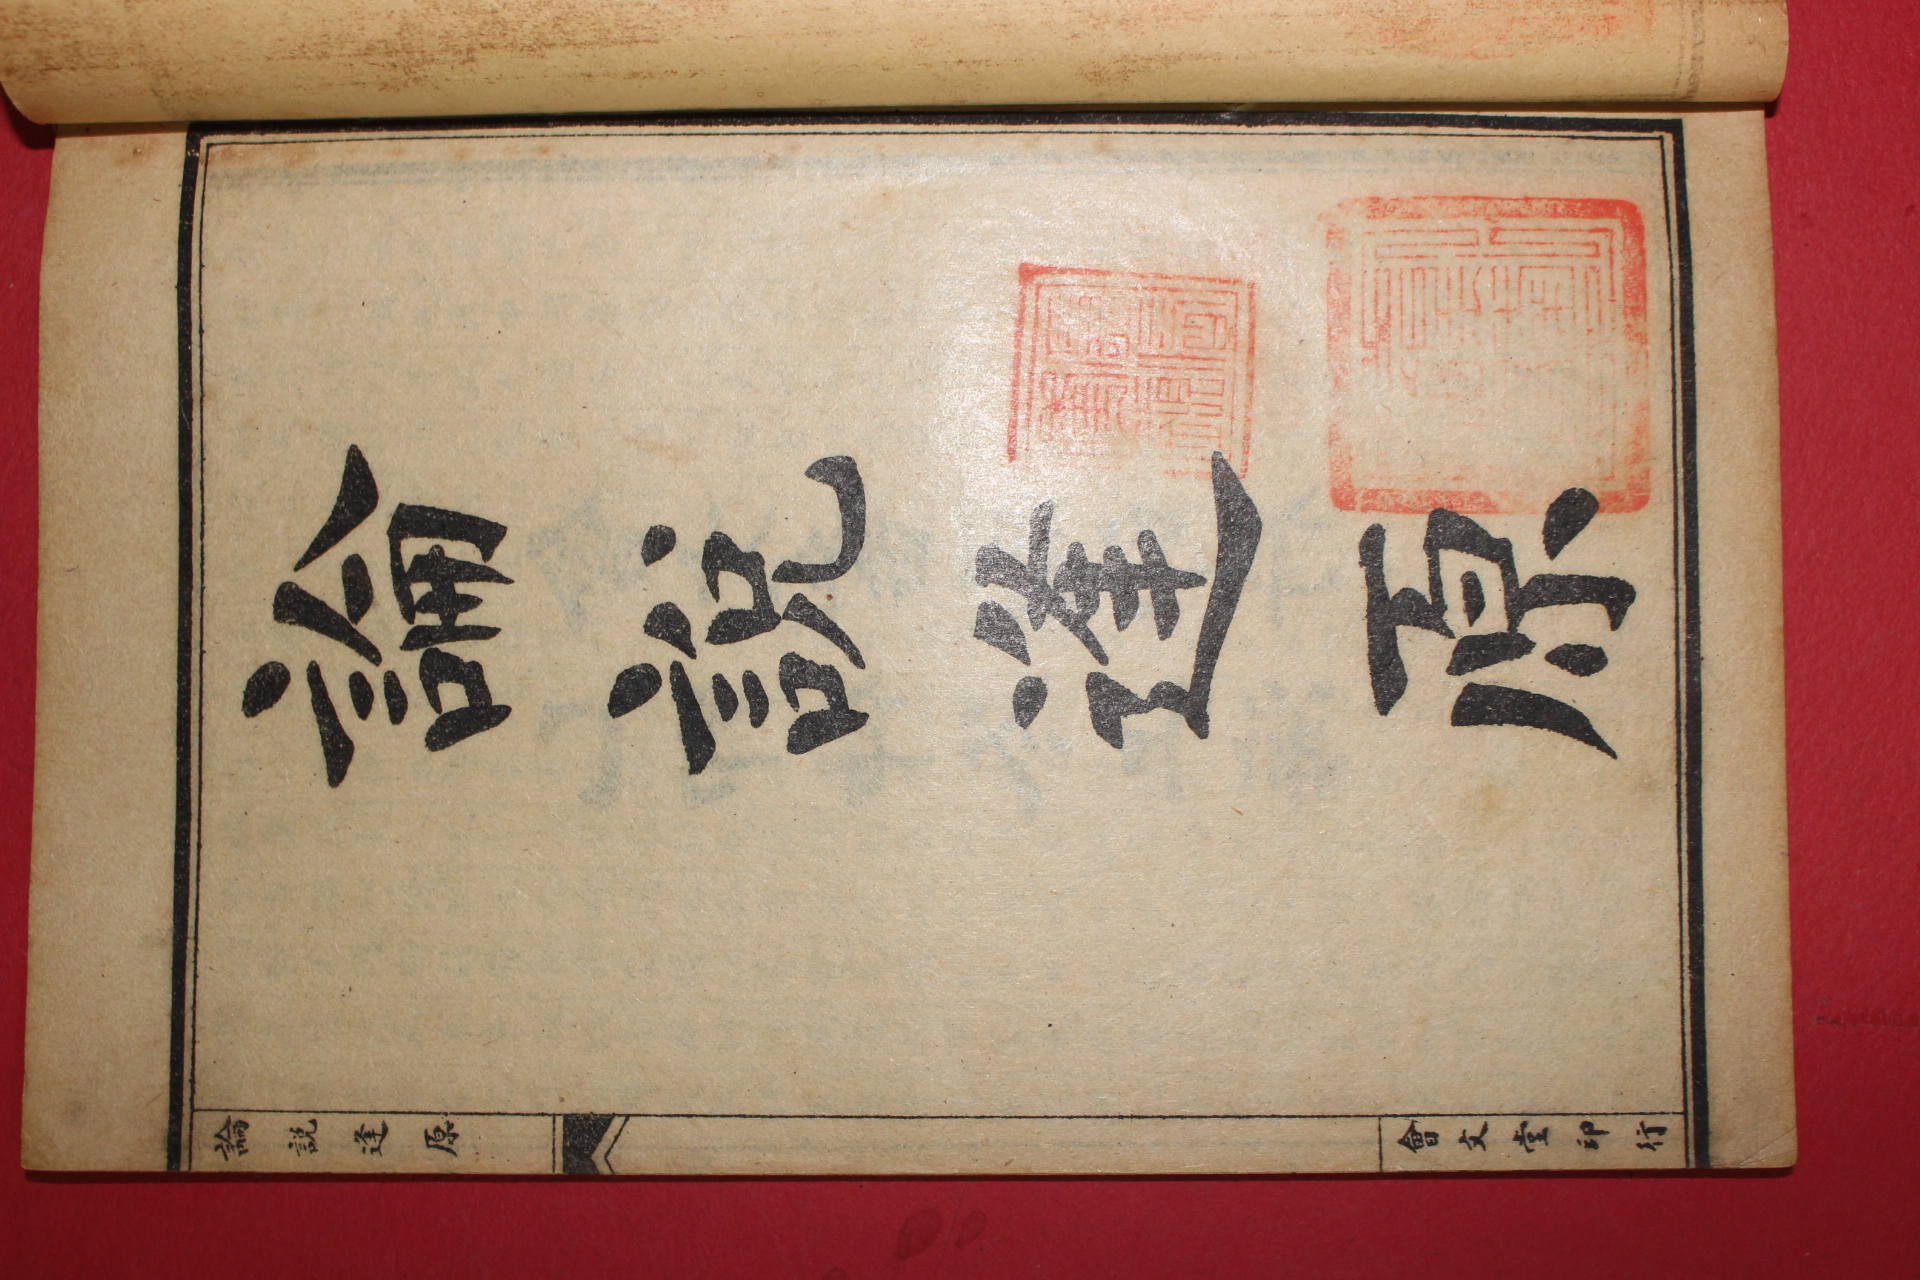 論說逢原
論說逢原
會文堂印行